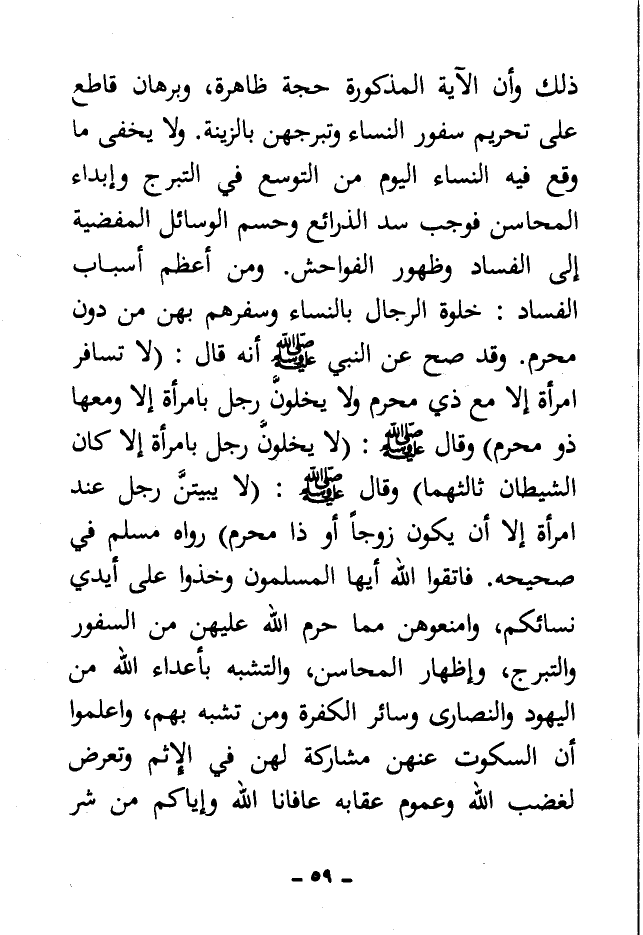 ذلك وأن الآية المذكورة حجة ظاهرة، وبرهان قاطع
على تحريم سفور النساء وتبرجهن بالزينة. ولا يخفى ما
وقع فيه النساء اليوم من التوسع في التبرج وإبداء
المحاسن فوجب سد الذرائع وحسم الوسائل المفضية
إلى الفساد وظهور الفواحش. ومن أعظم أسباب
الفساد : خلوة الرجال بالنساء وسفرهم بهن من دون
محرم. وقد صح عن النبي ﷺ أنه قال : (لا تسافر
امرأة إلا مع ذي محرم ولا يخلونَّ رجل بامرأة إلا ومعها
ذو محرم) وقال ﷺ : (لا يخلونَّ رجل بامرأة إلا كان
الشيطان ثالثهما) وقال ﷺ : (لا يبيتنَّ رجل عند
امرأة إلا أن يكون زوجاً أو ذا محرم) رواه مسلم في
صحيحه. فاتقوا الله أيها المسلمون وخذوا على أيدي
نسائكم، وامنعوهن مما حرم الله عليهن من السفور
والتبرج، وإظهار المحاسن، والتشبه بأعداء الله من
اليهود والنصارى وسائر الكفرة ومن تشبه بهم، واعلموا
أن السكوت عنهن مشاركة لهن في الإثم وتعرض
لغضب الله وعموم عقابه عافانا الله وإياكم من شر
- ٥٩ -